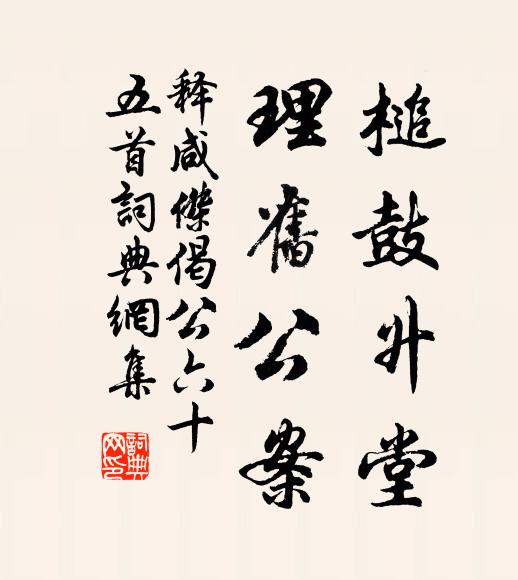 槌鼓升堂
理舊公案
释咸傑偈公六十
五首詞典網集
詞典
网印